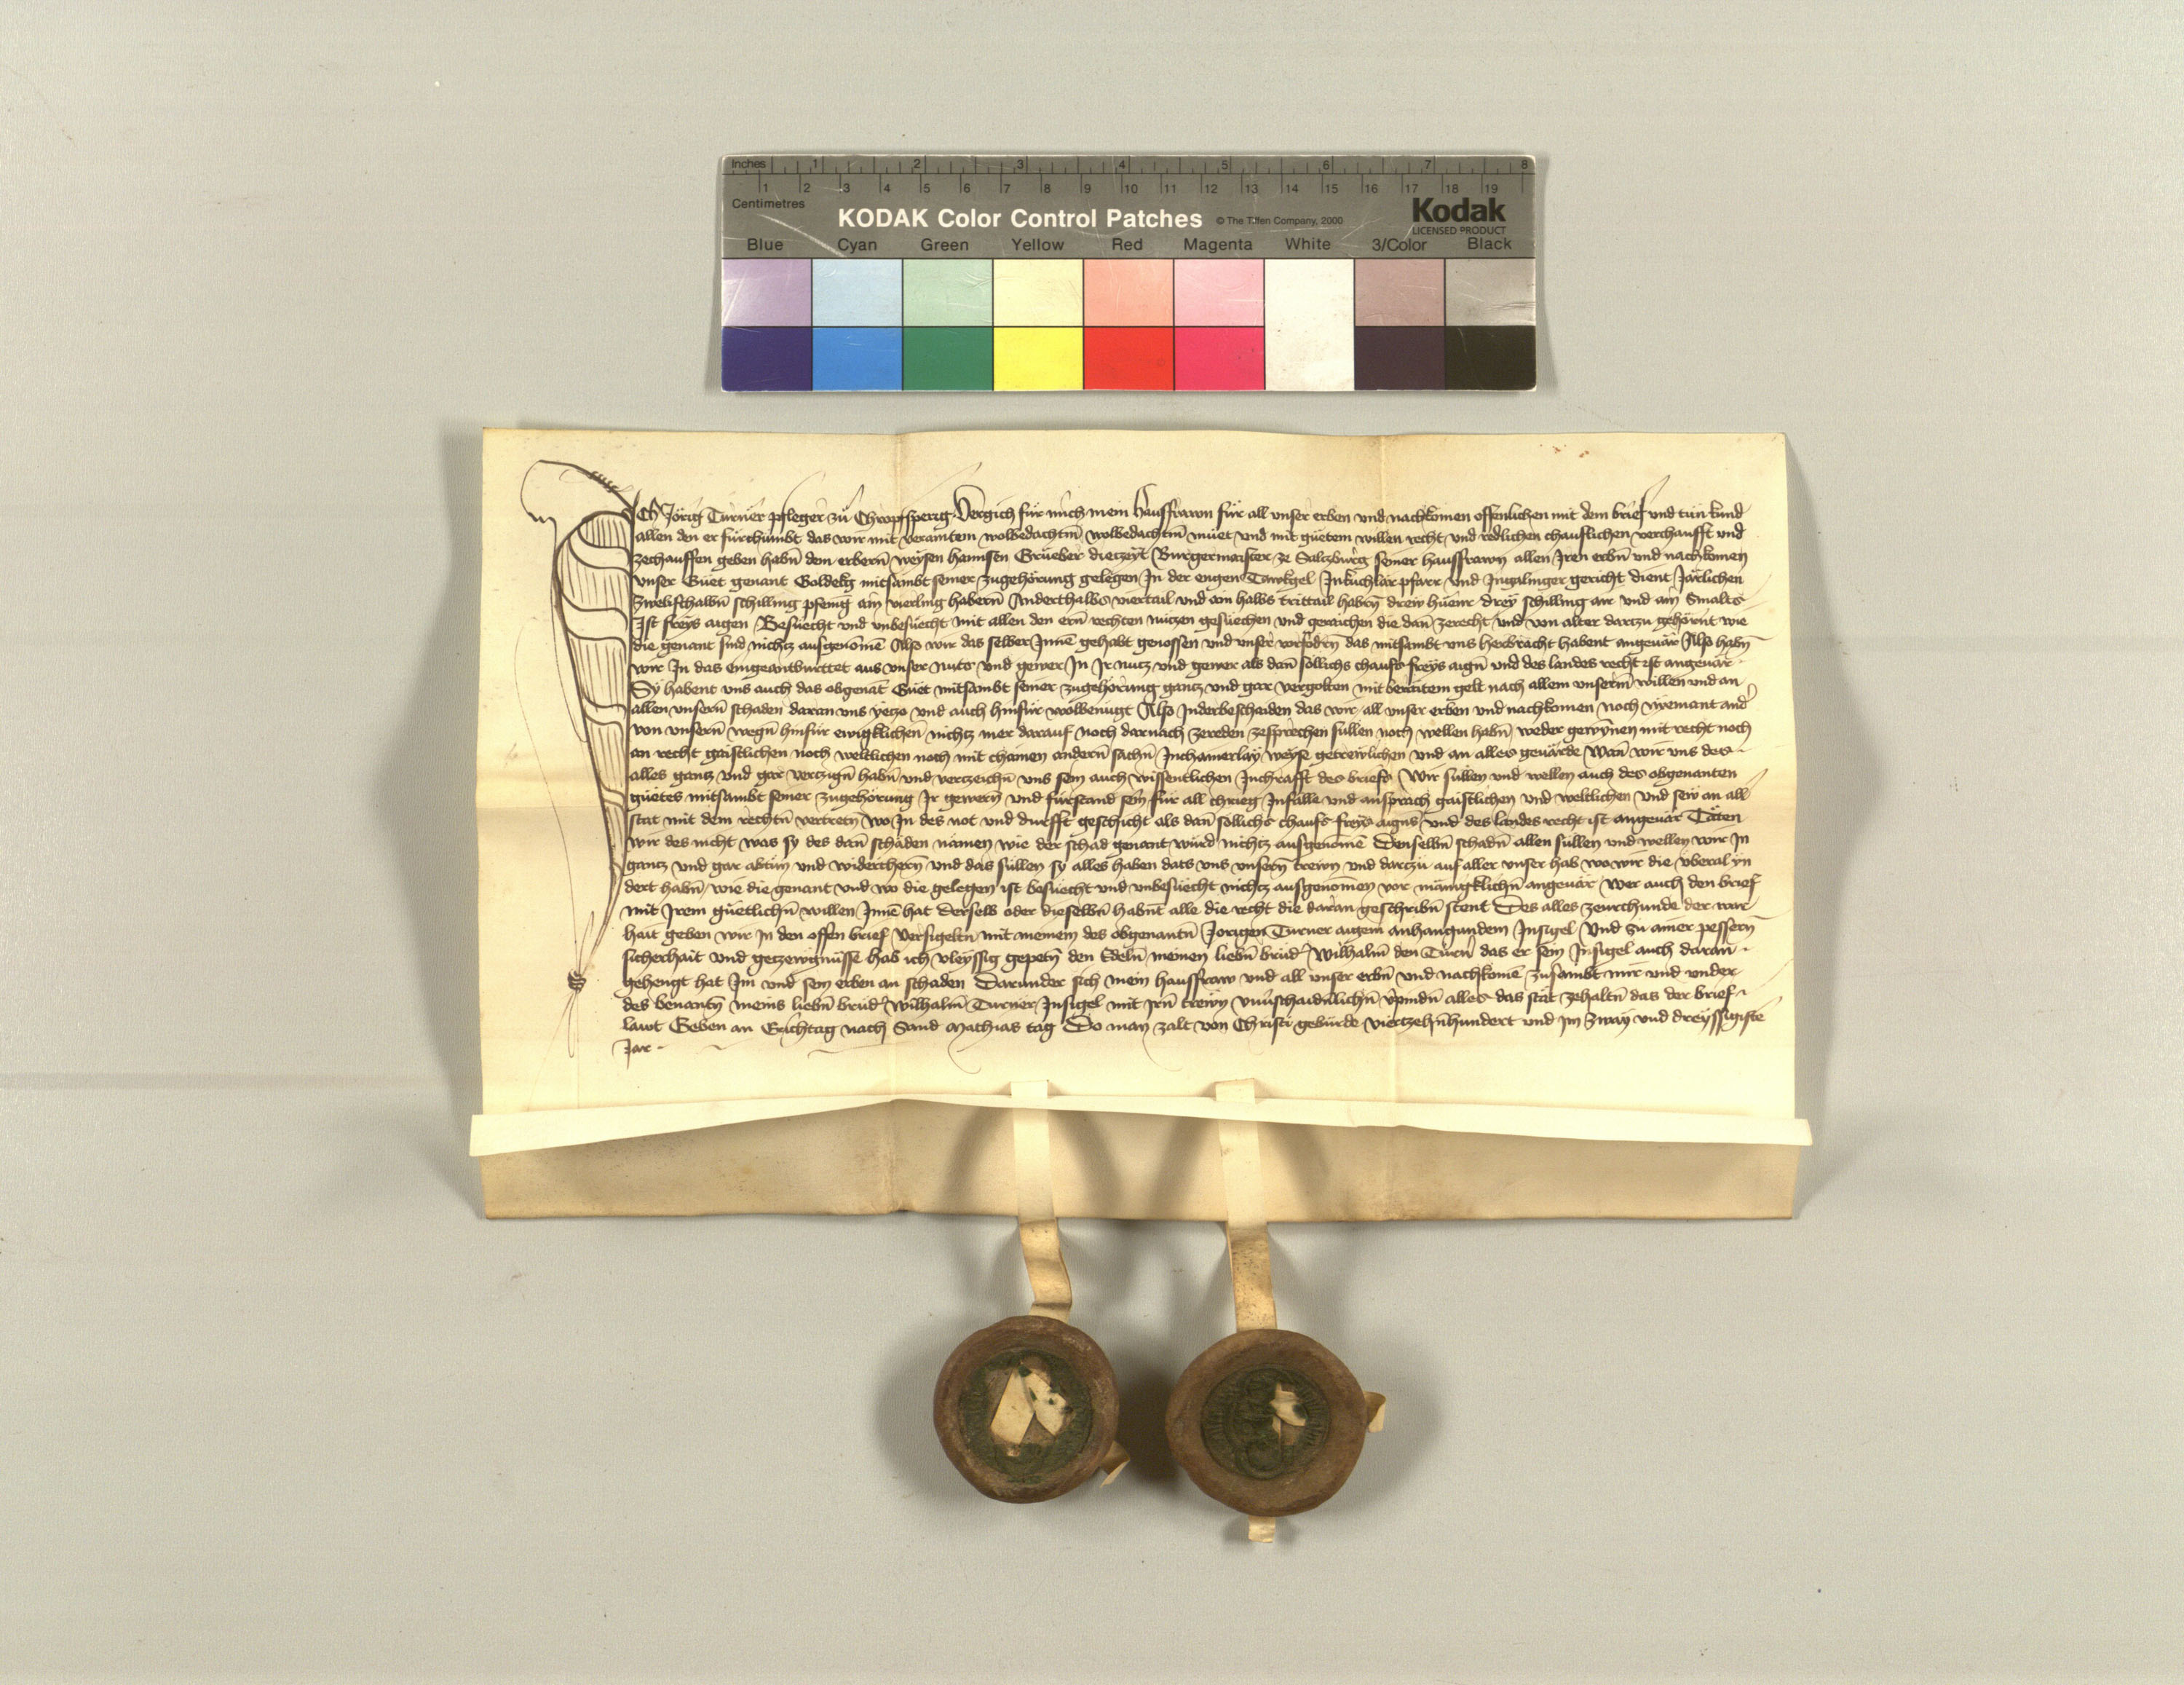 Inches 1 2 3 4 5 6 7 8
1 2 3 4 5 6 7 8 9 10 11 12 13 14 15 16 17 18 19
Centimetres
KODAK Color Control Patches © The Tiffen Company, 2000 Kodak
LICENSED PRODUCT
Blue Cyan Green Yellow Red Magenta White 3/Color Black
Ich Jörig Turner pfleger zu Chropfsperig Vergich für mich mein hausfrawn für all unser erben und nachkomen offenlichen mit dem brief und tun kund
allen den er fürchumbt das wir mit veraintem wolbedachtm̄ wolbedachtm̄ müet und mit güetem willen recht und redlichen chauflichen verchaufft und
zechauffen geben habn̄ dem erbern̄ weysen hannsen Grüeber dietzeyt Burgermaister ze Salczburg seiner hausfrawn allen Jren erbn̄ und nachkomen
unser Güet genant Goldekg mitsambt seiner zugehörung gelegen In der engen Tawkgel In kuchlär pfarr und Ingolinger gericht dient Järlichen
zwelifthalbn̄ schilling pfenig ain vierling habern̄ Anderthalbs viertail und ain halbs drittail habern̄ drew hüenr drey schilling air und ain Smalts
Ist freys aigen Besüecht und unbesüecht mit allen den ern̄ rechten nützen gesüechen und geraichen die dan̄ zerecht und von alter dartzu gehörnt wie
die genant sind nichtz ausgenomē Also wir das selber Innē gehabt genossen und unser vorfodrn̄ das mitsambt uns herbracht habent angeuär Also habn̄
wir In das eingeantburttet aus unser nutz und gewer In Jr nutz und gewer als dan̄ söllichs chaufs freys aign̄ und des landes recht ist angeuär
Sy habent uns auch das obgenāt Güet mitsambt seiner zugehörung gantz und gar vergolten mit beraitem gelt nach allem unserm̄ willen und an
allen unsern̄ schaden daran uns yetzo und auch hinfür wolbenügt Also Inderbeschaiden das wir all unser erben und nachkomen noch nyemant and̄
von unsern̄ wegn̄ hinfür ewigklichen nichtz mer darauf noch darnach zereden zesprechen süllen noch wellen habn̄ weder gewynnen mit recht noch
an recht gaistlichen noch weltlichen noch mit chainen andern̄ sachn̄ Inchainerlay weyse getrewlichen und an alles geuärde Wan̄ wir uns des
alles gantz und gar vertzign̄ habn̄ und vertzeichn̄ uns sein auch wissentlichen Inchrafft des briefs Wir süllen und wellen auch des obgenanten
güetes mitsambt seiner zugehörung Jr gewern̄ und fürstand sein für all chrieg Infälle und ansprach gaistlichen und weltlichen und sew an all
stat mit dem rechtn̄ vertretn̄ wo In des not und durfft geschicht als dan̄ söllichs chaufs freys aigns und des landes recht ist angeuär Täten
wir des nicht was sy des dan̄ schaden nämen wie der schad genant würd nichtz ausgenomē Denselbn̄ schadn̄ allen süllen und wellen wir In
gantz und gar abtun und widerchern̄ und das süllen sy alles haben datz uns unsern̄ trewn und dartzu auf aller unser hab wo wir die überal yn
dert habn̄ wie die genant und wo die gelegen ist besüecht und unbesüecht nichtz ausgenomen vor mänigklichn̄ angeuär Wer auch den brief
mit Jrem güetlichn̄ willen Innē hat derselb oder dieselbn̄ habnt alle die recht die daran geschribn̄ stent Des alles zeurchunde der war
hait geben wir In den offen brief Versigeltn̄ mit meinem des obgenantn̄ Jorigen Turner aigem anhangundem Insigel Und zu ainer pessern̄
sicherhait und getzewgnüsse hab ich vleyssig gepetn̄ den Edeln̄ meinen liebn̄ brud̄ Wilhalm̄ den Turn̄ das er sein Insigel auch daran
gehengt hat Im und sein erben an schaden Darunder sich mein hausfraw und all unser erbn̄ und nachkomē zusambt mir und under
des benantn̄ meins liebn̄ brud̄ Wilhalm̄ Turner Insigel mit irn̄ trewn unuerschaidnlichn̄ verpindn̄ alles das stät zehaltn̄ das der brief
lawt Geben an Erichtag nach Sand Mathias tag Do man zalt von Christi geburde viertzehnhundert und im Zway und dreyssigiste
Jar